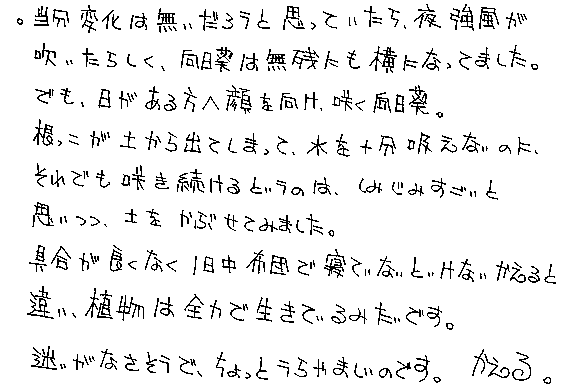 。当分変化は無いだろうと思っていたら、夜強風が
吹いたらしく、向日葵は無残にも横になってました。
でも、日がある方へ顔を向け、咲く向日葵。
根っこが土から出てしまって、水を十分吸えないのに、
それでも咲き続けるというのは、しみじみすごいと
思いつつ、土をかぶせてみました。
具合が良くなく1日中布団で寝ていないといけないかえると
違い、植物は全力で生きているみたいです。
迷いがなさそうで、ちょっとうらやましいのです。 かえる。